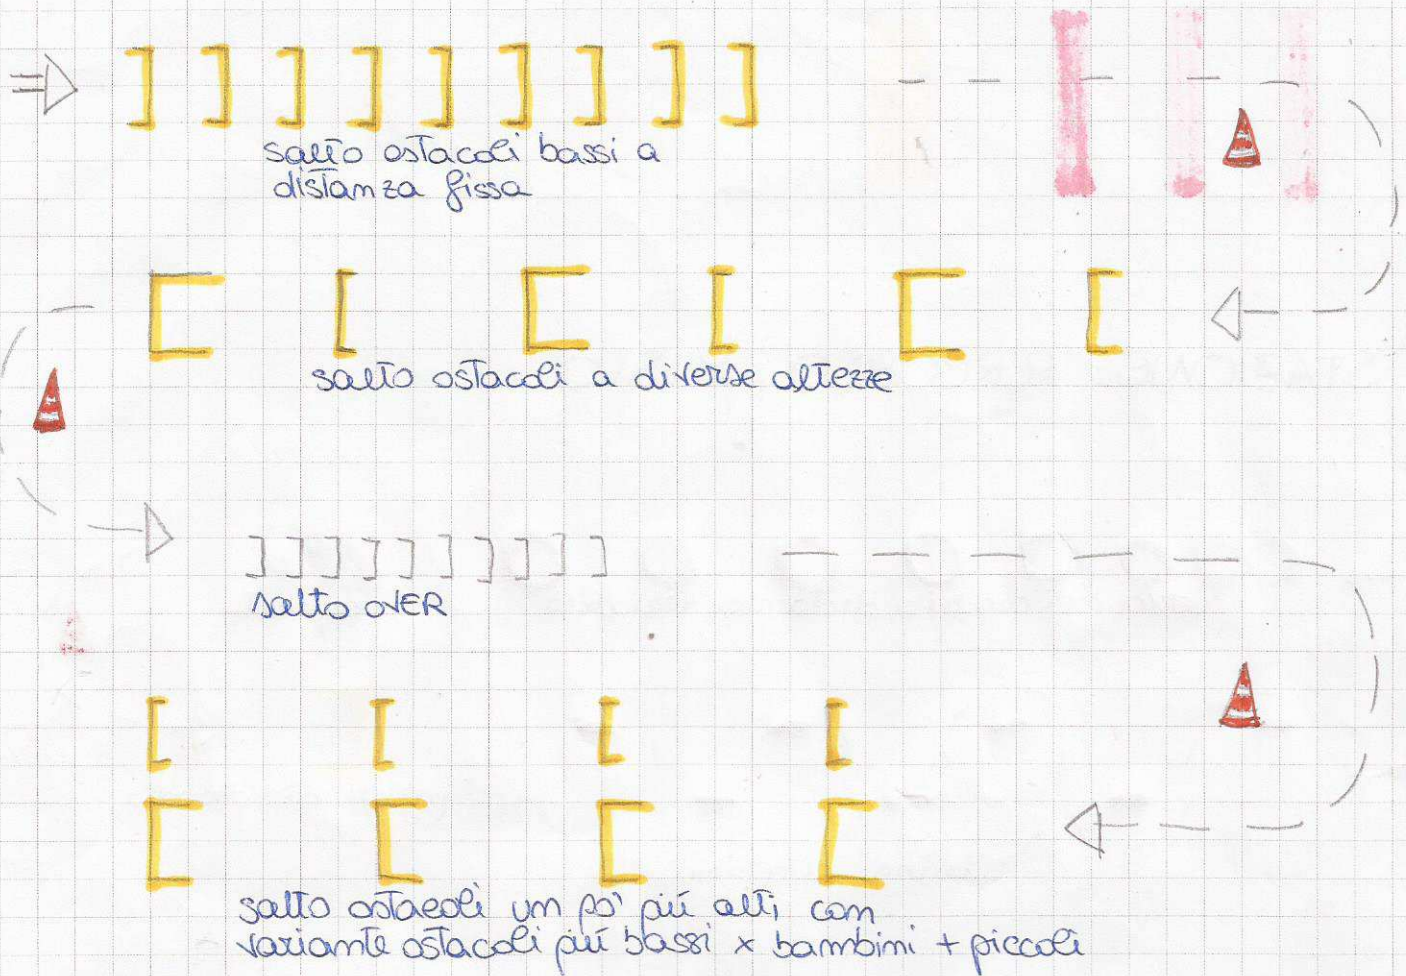 salto ostacoli bassi a
distanza fissa
salto ostacoli a diverse altezze
salto OVER
salto ostacoli un pò più alti, con
variante ostacoli più bassi x bambini + piccoli